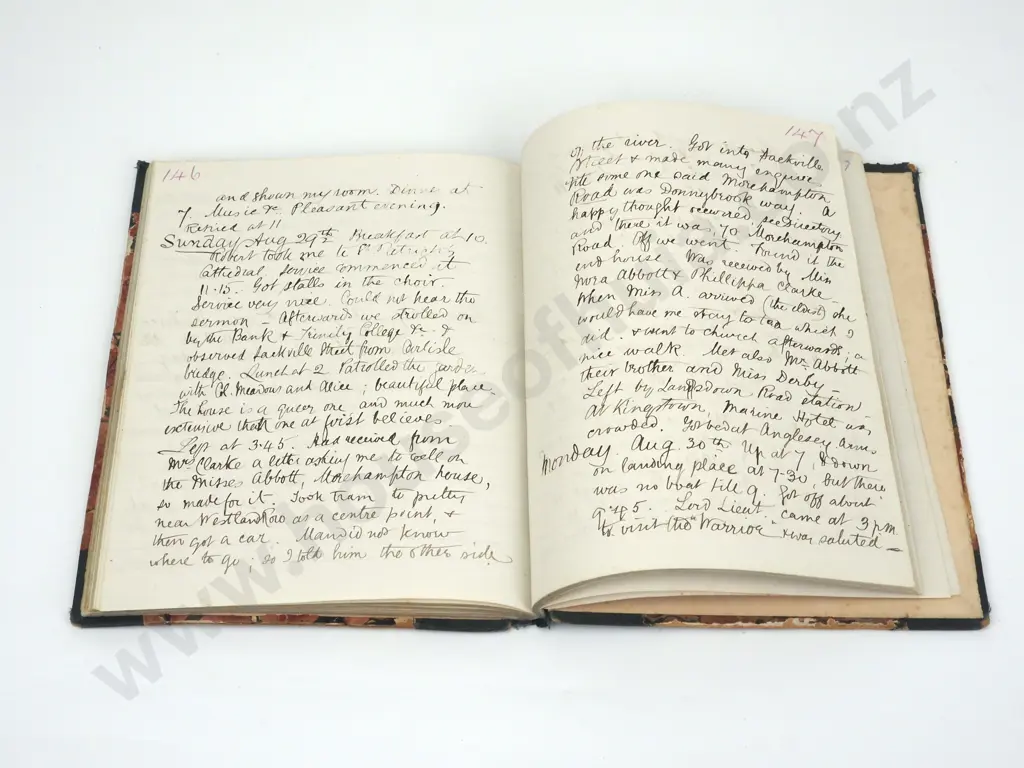 146
and shown my room. Dinner at
7. Music &c. Pleasant evening.
Retired at 11
Sunday Aug 29th. Breakfast at 10.
Robert took me to St Patrick's
Cathedral, service commenced at
11.15. Got stalls in the choir.
Service very nice. Could not hear the
sermon - Afterwards we strolled on
by the Bank & Trinity College &c. &
observed Sackville Street from Carlisle
bridge. Lunch at 2 Patrolled the garden
with Ch. Meadows and Alice; beautiful place.
The house is a queer one, and much more
extensive than one at first believes.
Left at 3.45. Had received from
Mrs Clarke a letter asking me to call on
the Misses Abbott, Morehampton house,
so made for it. Took tram to pretty
near Westland Row as a centre point, &
then got a car. Man did not know
where to go; so I told him the other side
147
of the river. Got into Sackville
Street & made many enquiries
some one said Morehampton
Road was Donnybrook way. A
happy thought occurred, see Directory
and there it was, 70 Morehampton
Road. Off we went. Found it the
end house. Was received by Miss
Abbott & Phillippa Clarke -
When Miss A. arrived (the eldest) she
would have me stay to tea which I
did. & went to church afterwards; a
nice walk. Met also Mrs Abbott
their brother and Miss Derby -
Left by Lansdown Road station -
At Kingstown, Marine Hotel was
crowded. Got bed at Anglesey Arms
Monday. Aug. 30th Up at 7, & down
on landing place at 7-30, but there
was no boat till 9. Got off about
9.45. Lord Lieut. came at 3 p.m.
to visit the "Warrior" & was saluted -
www.houseof .nz